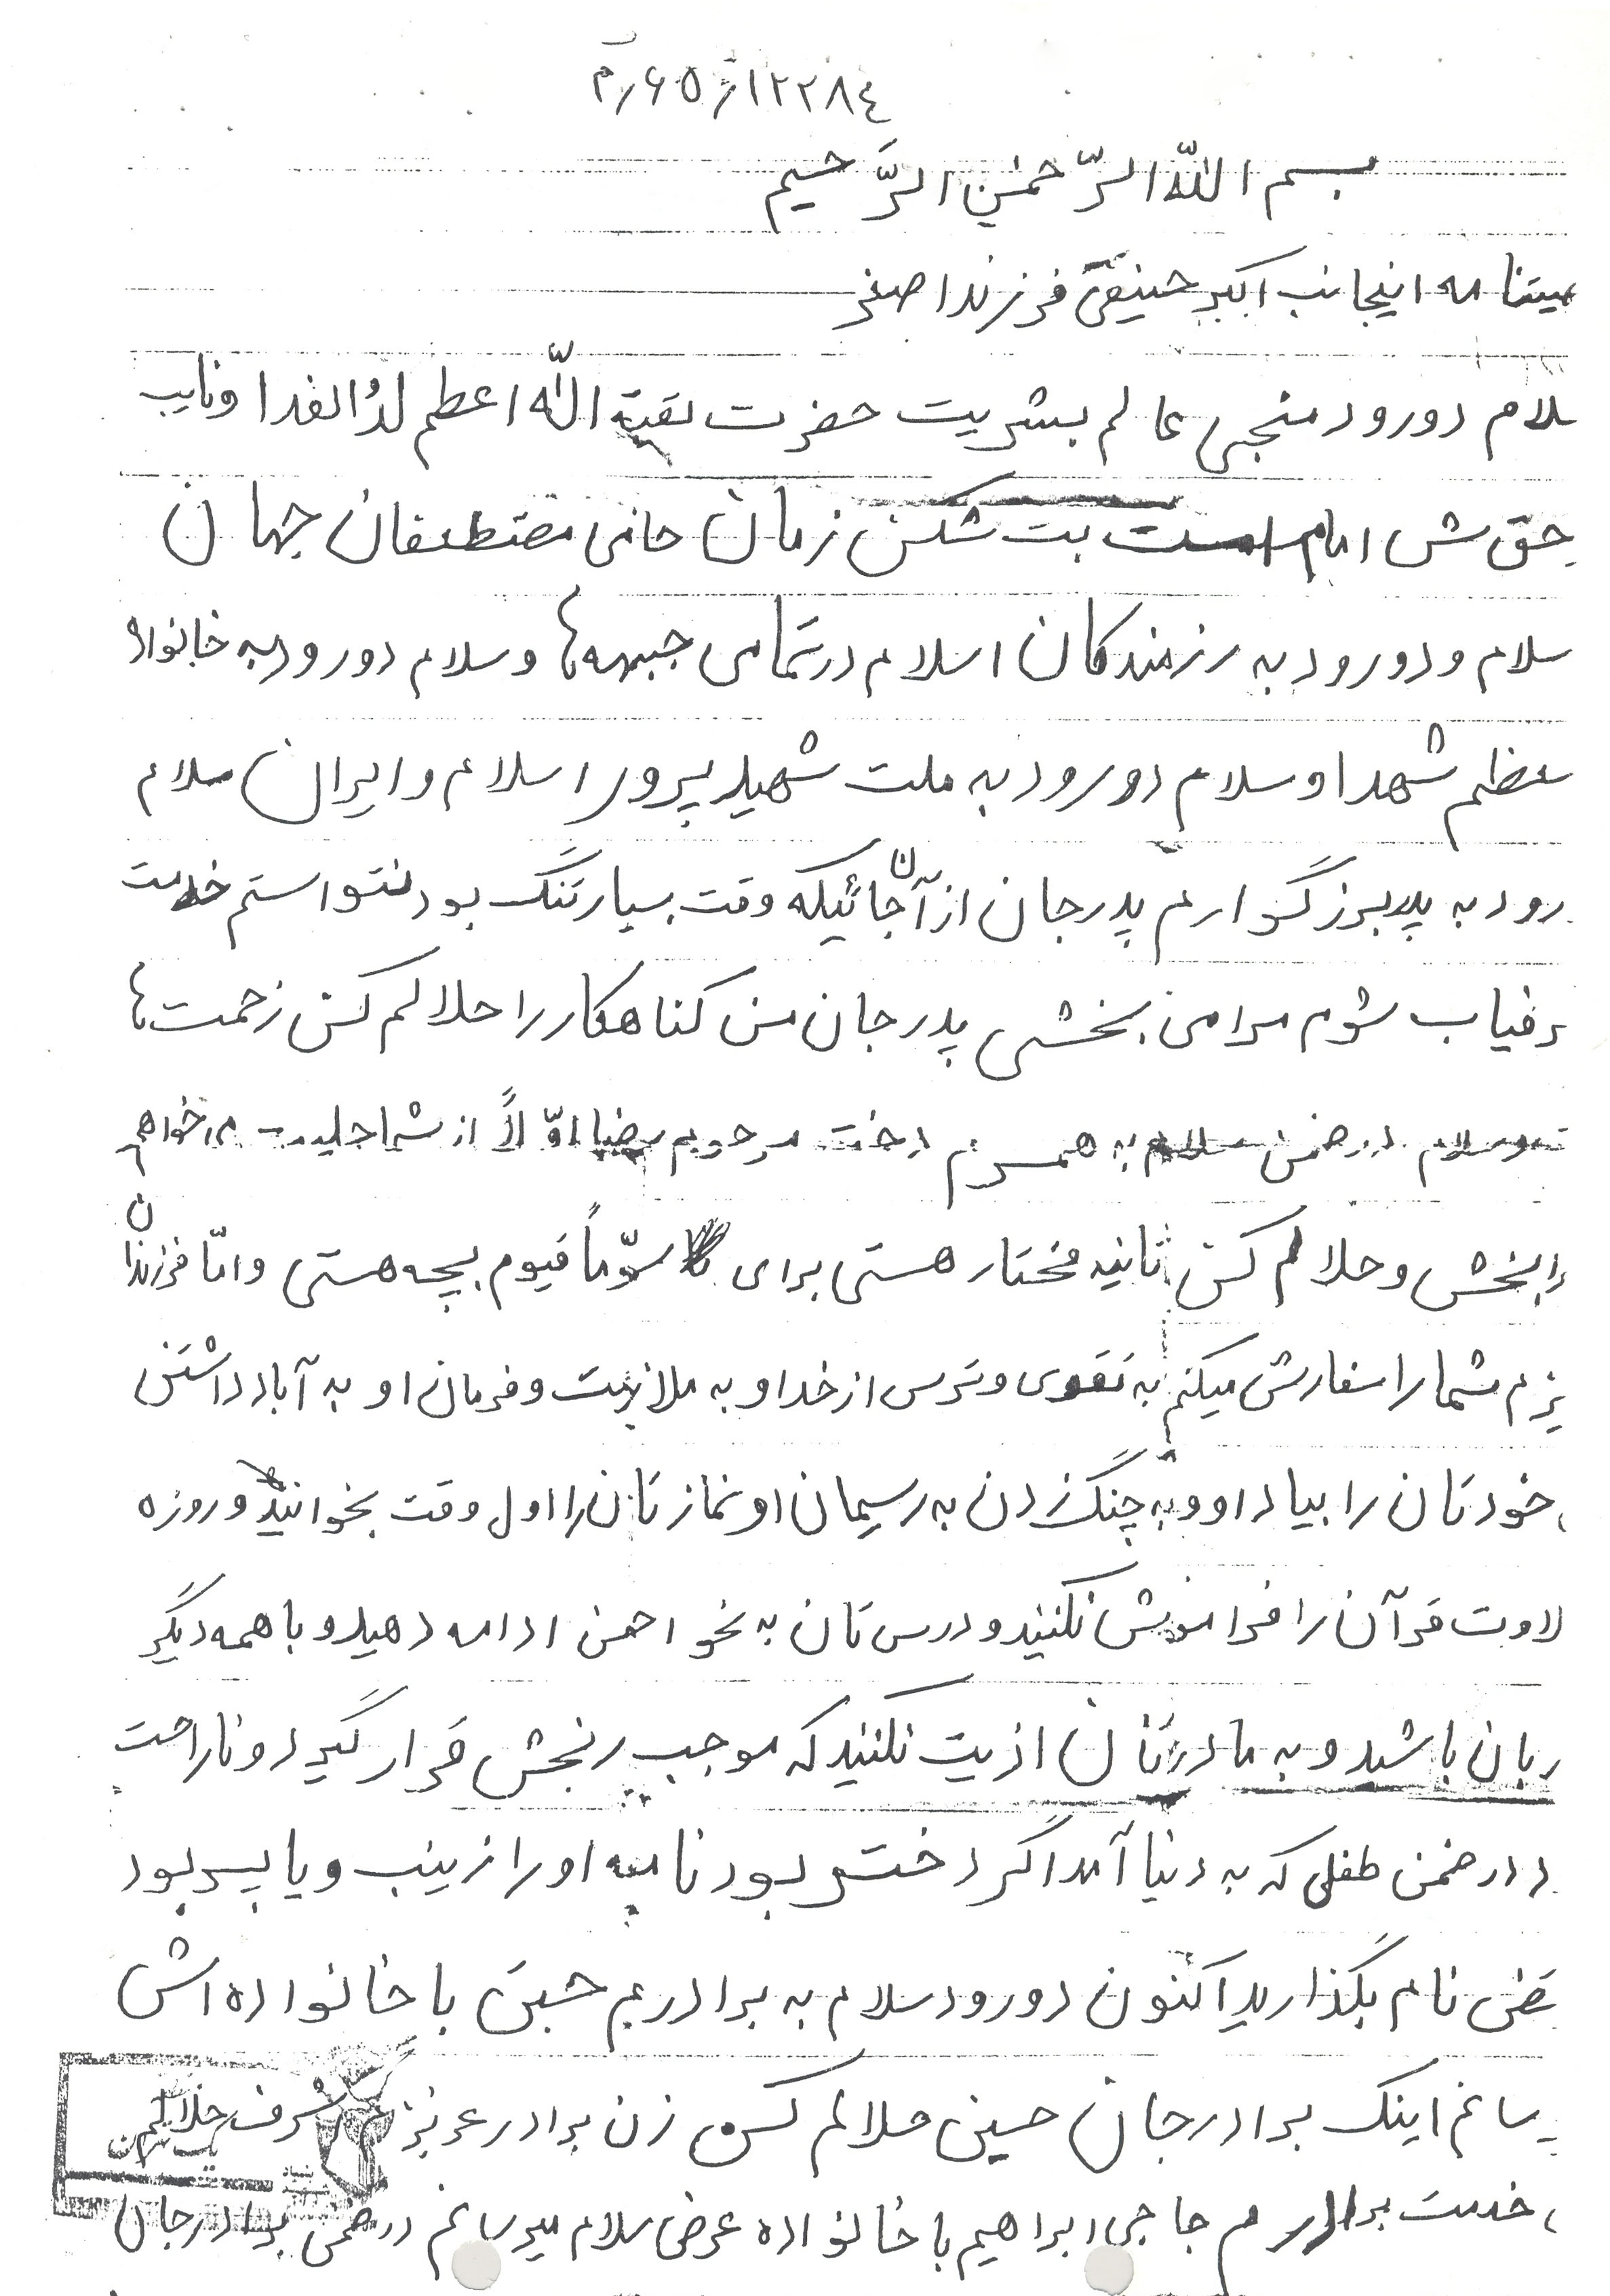 ۱۲۲۸۴ر۶۵رم
بسم اللّه الرّحمٰن الرَّحیم
صیتنامه اینجانب اکبر حنیفی فرزند اصغر
سلام دورود منجی عالم بشریت حضرت بقیة اللّه اعظم لهُ الفدا و نایب
حق ش امام بت شکن زمان حامی مصتظعفان جهان
سلام و دورود به رزمندگان اسلام در تمامی جبهه‌ها و سلام دورود به خانواده
عظم شهدا و سلام دورود به ملت شهید پرور اسلام و ایران سلام
رود به پدر بزرگوارم پدر جان از آنجائیکه وقت بسیار تنگ بود نتواستم خدمت
رفیاب شوم مرا می بخشی پدر جان من کناهکار را حلالم کن زحمت‌ها
سلام در ضمن سلام به همسرم دخت مرحوم رضا اوّلاً از شما حلیت می خواهم
را بخش و حلالم کن ثانیه مختار هستی برای سوّماً قیوم بچه هستی و امّا فرزندان
یزم شما را سفارش میکنم به تقوی و ترس از خدا و به ملازمت و فرمان او به آباد داشتن
خودتان را بیاد او و به چنگ زدن به رسیمان او نمازتان را اول وقت بخوانید و روزه
لاوت قرآن را فراموش نکنید و درس تان به نحو احسن ادامه دهید و با همه دیگر
ربان باشید و به مادرتان اذیت نکنید که موجب رنجش قرار گیرد و ناراحت
د در ضمن طفلی که به دنیا آمد اگر دختر بود نامیه او را زینب و یا پسر بود
تضی نام بگذارید اکنون دورود سلام به برادرم با خانواده اش
یسانم اینک برادر جان حسین حلالم کن زن برادر عزیزم شرف حلالم
خدمت برادرم حاجی ابراهیم با خانواده عرض سلام میرسانم در ضمن برادر جان